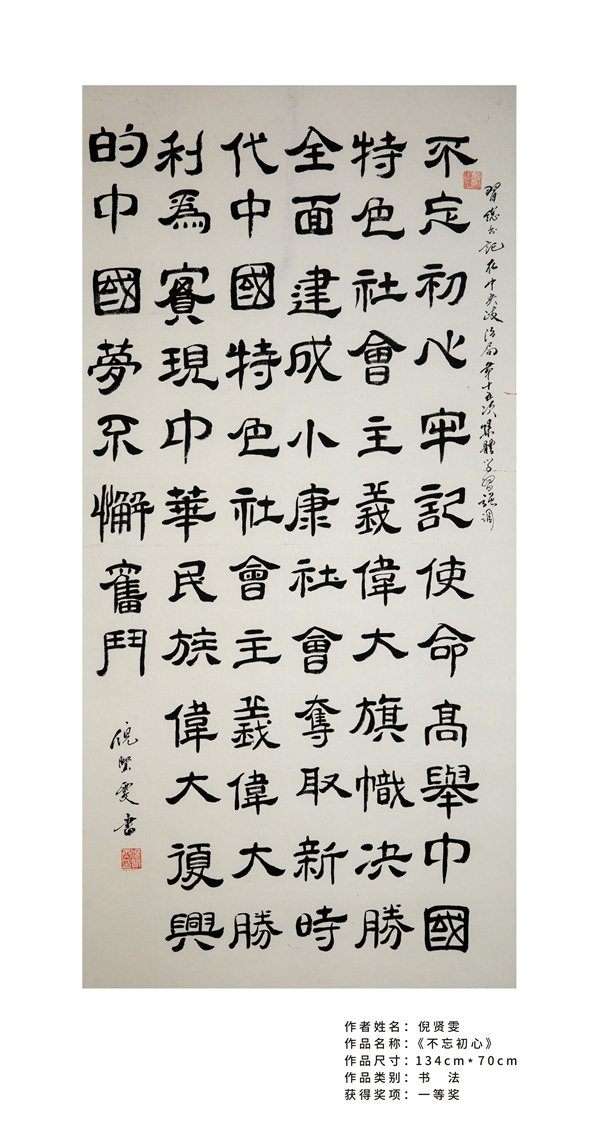 習總書記在中央政治局第十五次集體学習強調
不忘初心牢記使命高舉中國
特色社會主義偉大旗幟决勝
全面建成小康社會奪取新時
代中國特色社會主義偉大勝
利爲實現中華民族偉大復興
的中國夢不懈奮鬥
倪賢雯書
作者姓名：倪贤雯
作品名称：《不忘初心》
作品尺寸：134cm*70cm
作品类别：书 法
获得奖项：一等奖